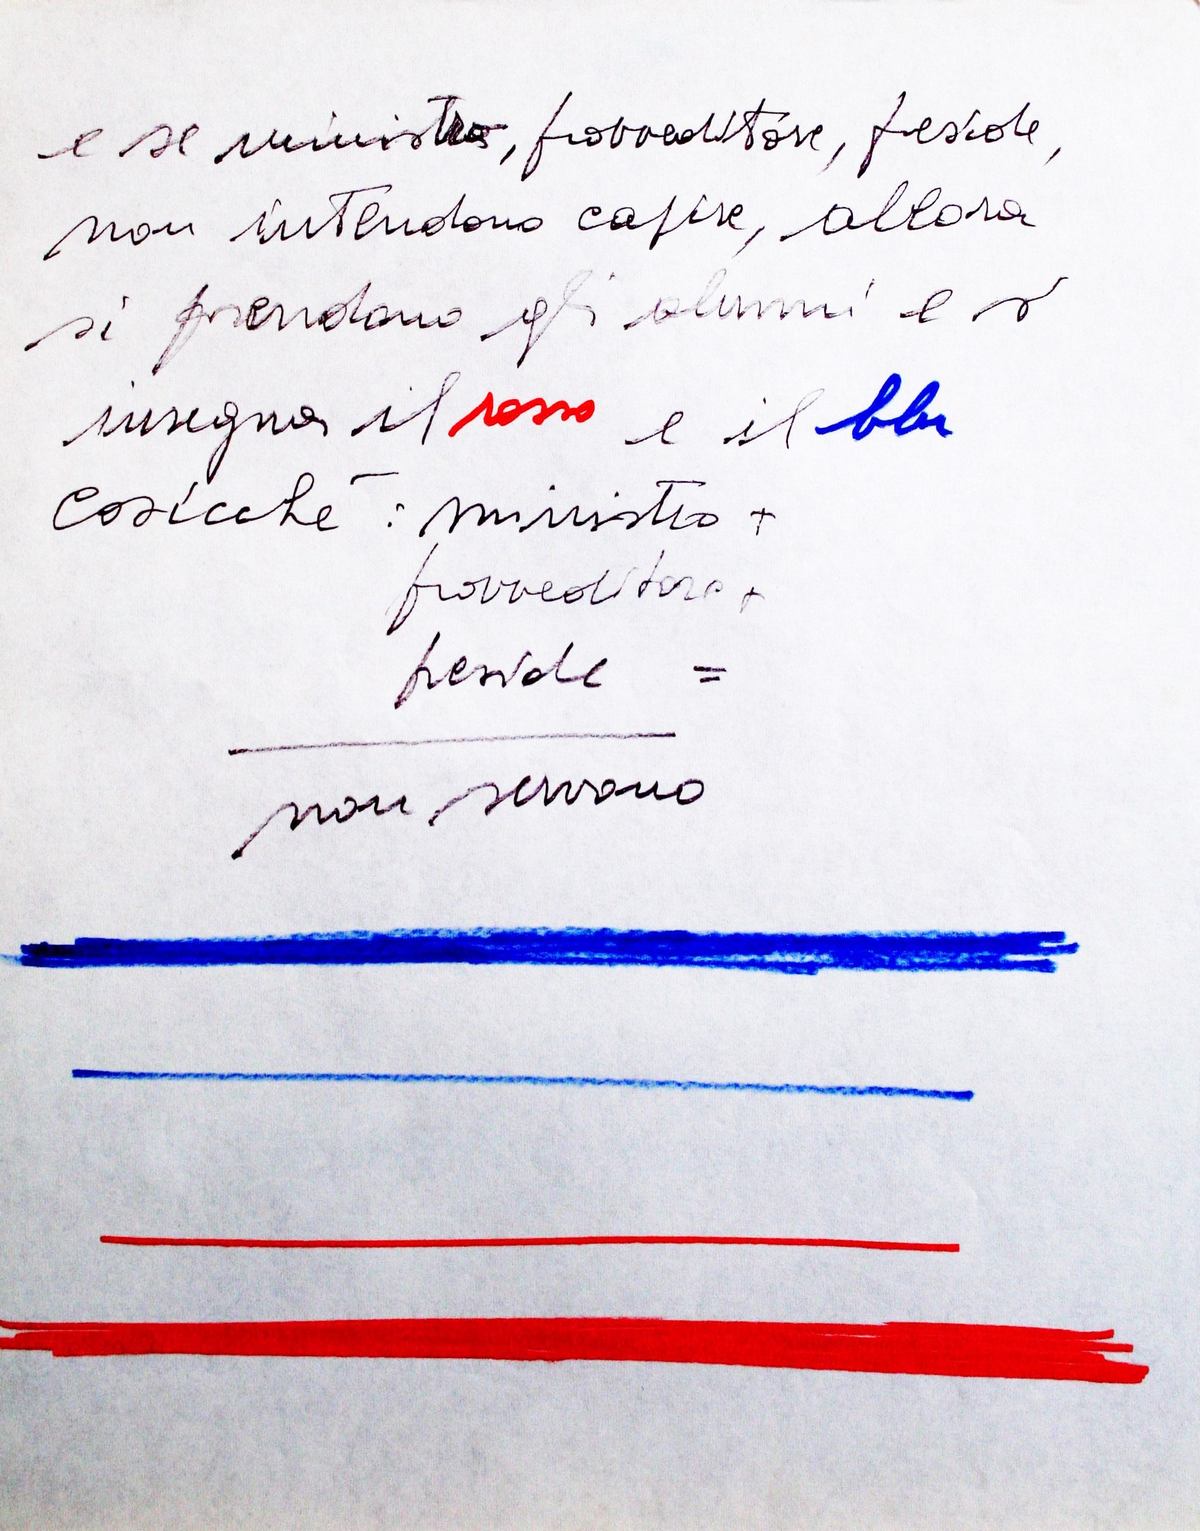 e se ministro, provveditore, preside,
non intendono capire, allora
si prendono gli alunni e si
insegna il rosso e il blu
cosicché : ministro +
provveditore +
preside =
non servono